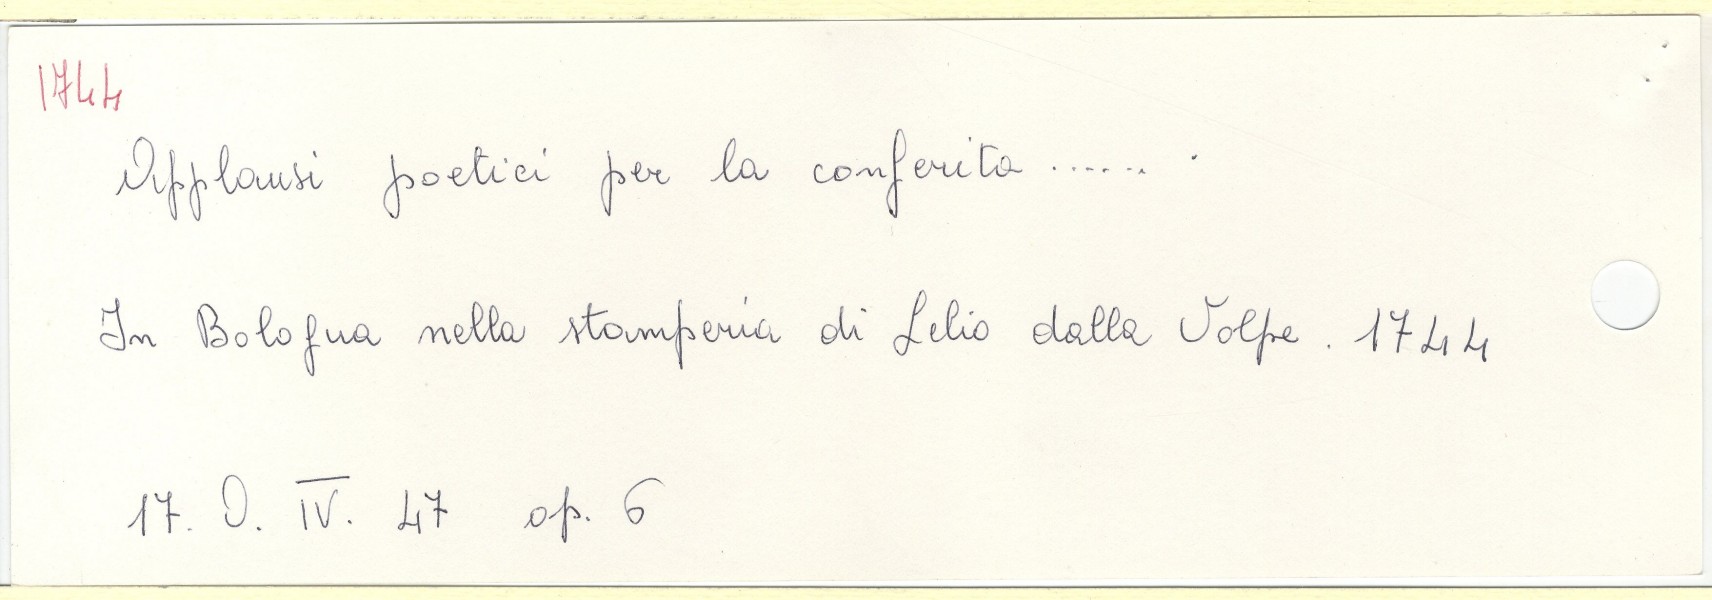 1744
Applausi poetici per la conferita .......
In Bologna nella stamperia di Lelio dalla Volpe. 1744
17. O. IV. 47 op. 6